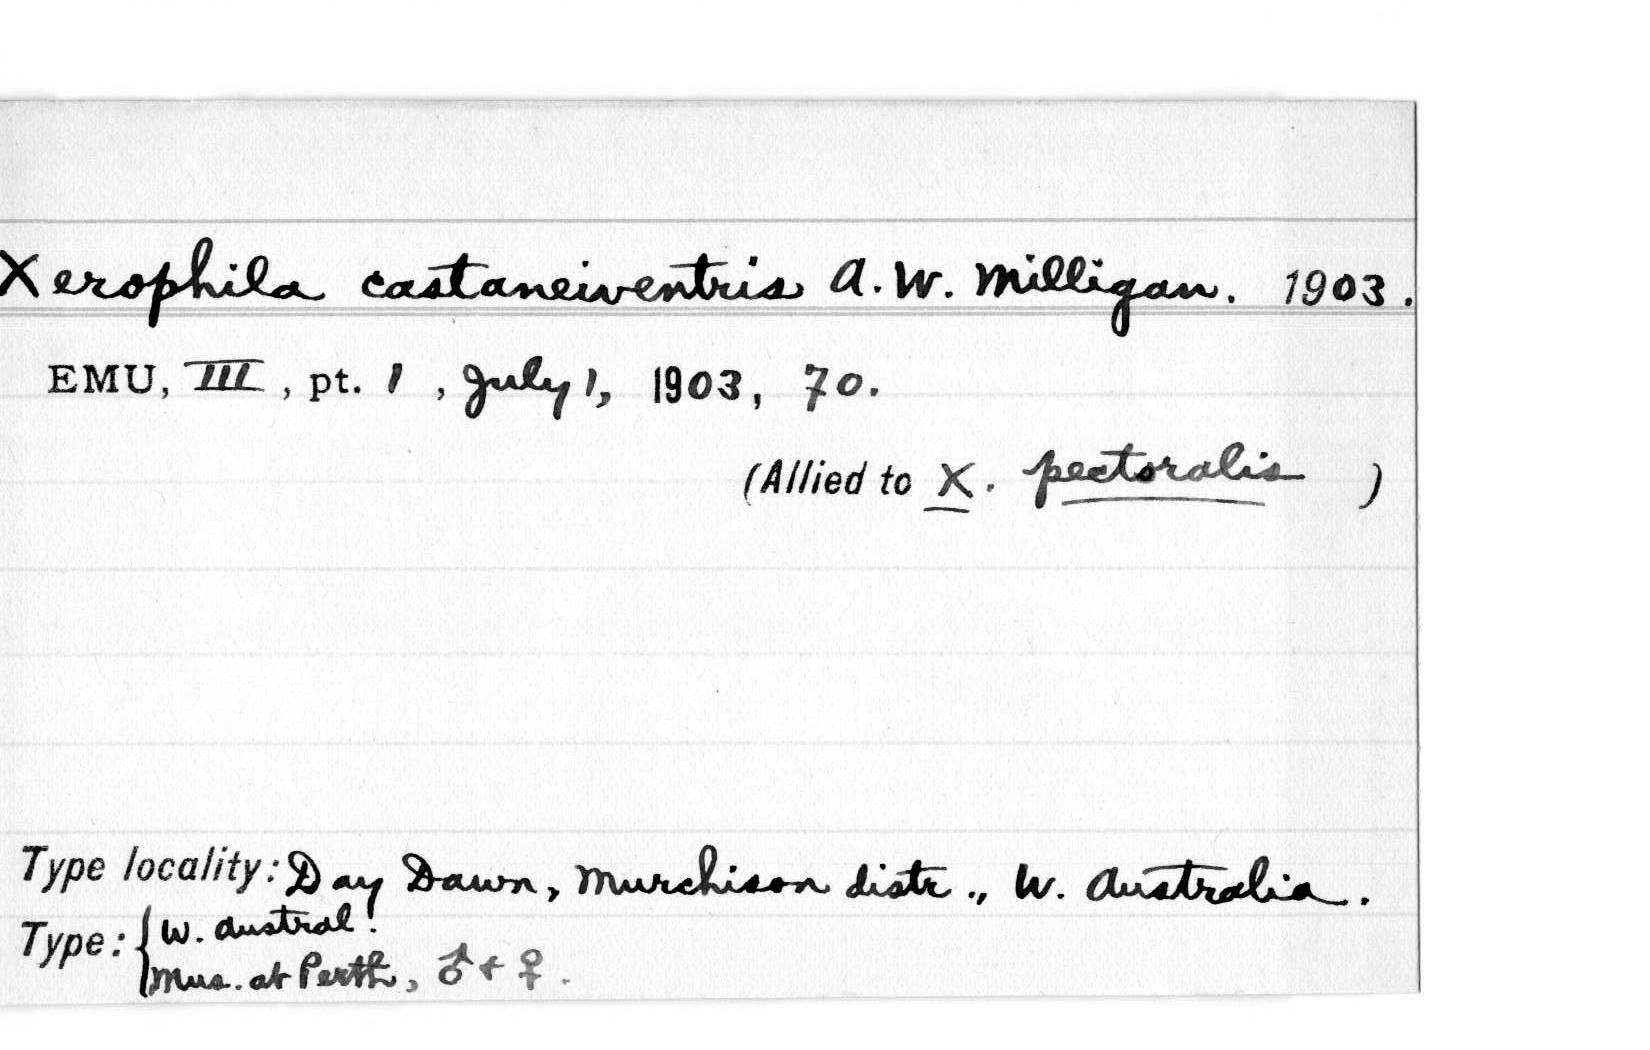 Xerophila castaneiventris A. W. Milligan. 1903.
EMU, III, pt. 1, July 1, 1903, 70.
(Allied to X. pectoralis )
Type locality: Day Dawn, Murchison distr., W. Australia.
Type: { W. Austral.
Mus. at Perth, ♂ + ♀.